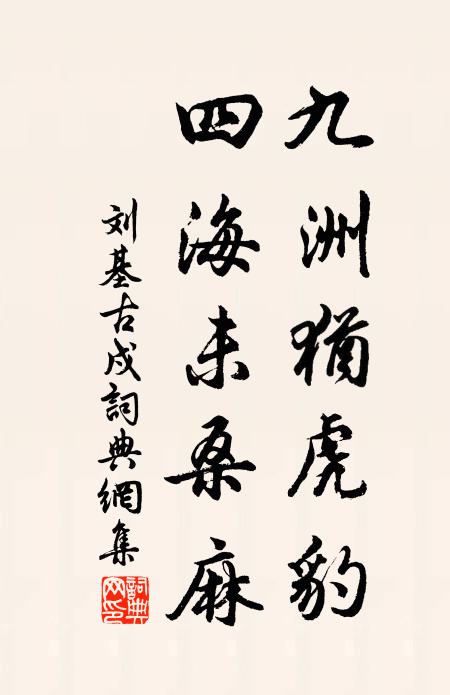 九洲猶虎豹
四海未桑麻
刘基古戍詞典網集
詞典網印